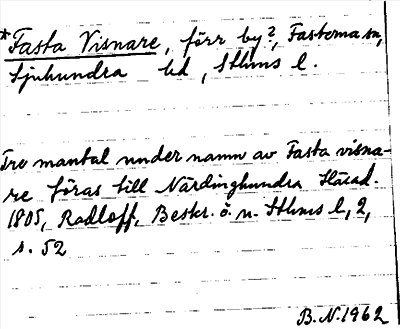 *Fasta Visnare, förr by?, Fasterna sn,
Sjuhundra hd, Sthms l.
Tre mantal under namn av Fasta visna-
re föras till Närdinghundra Härad.
1805, Radloff, Beskr. ö. n. Sthms l, 2,
s. 52
B.N. 1962